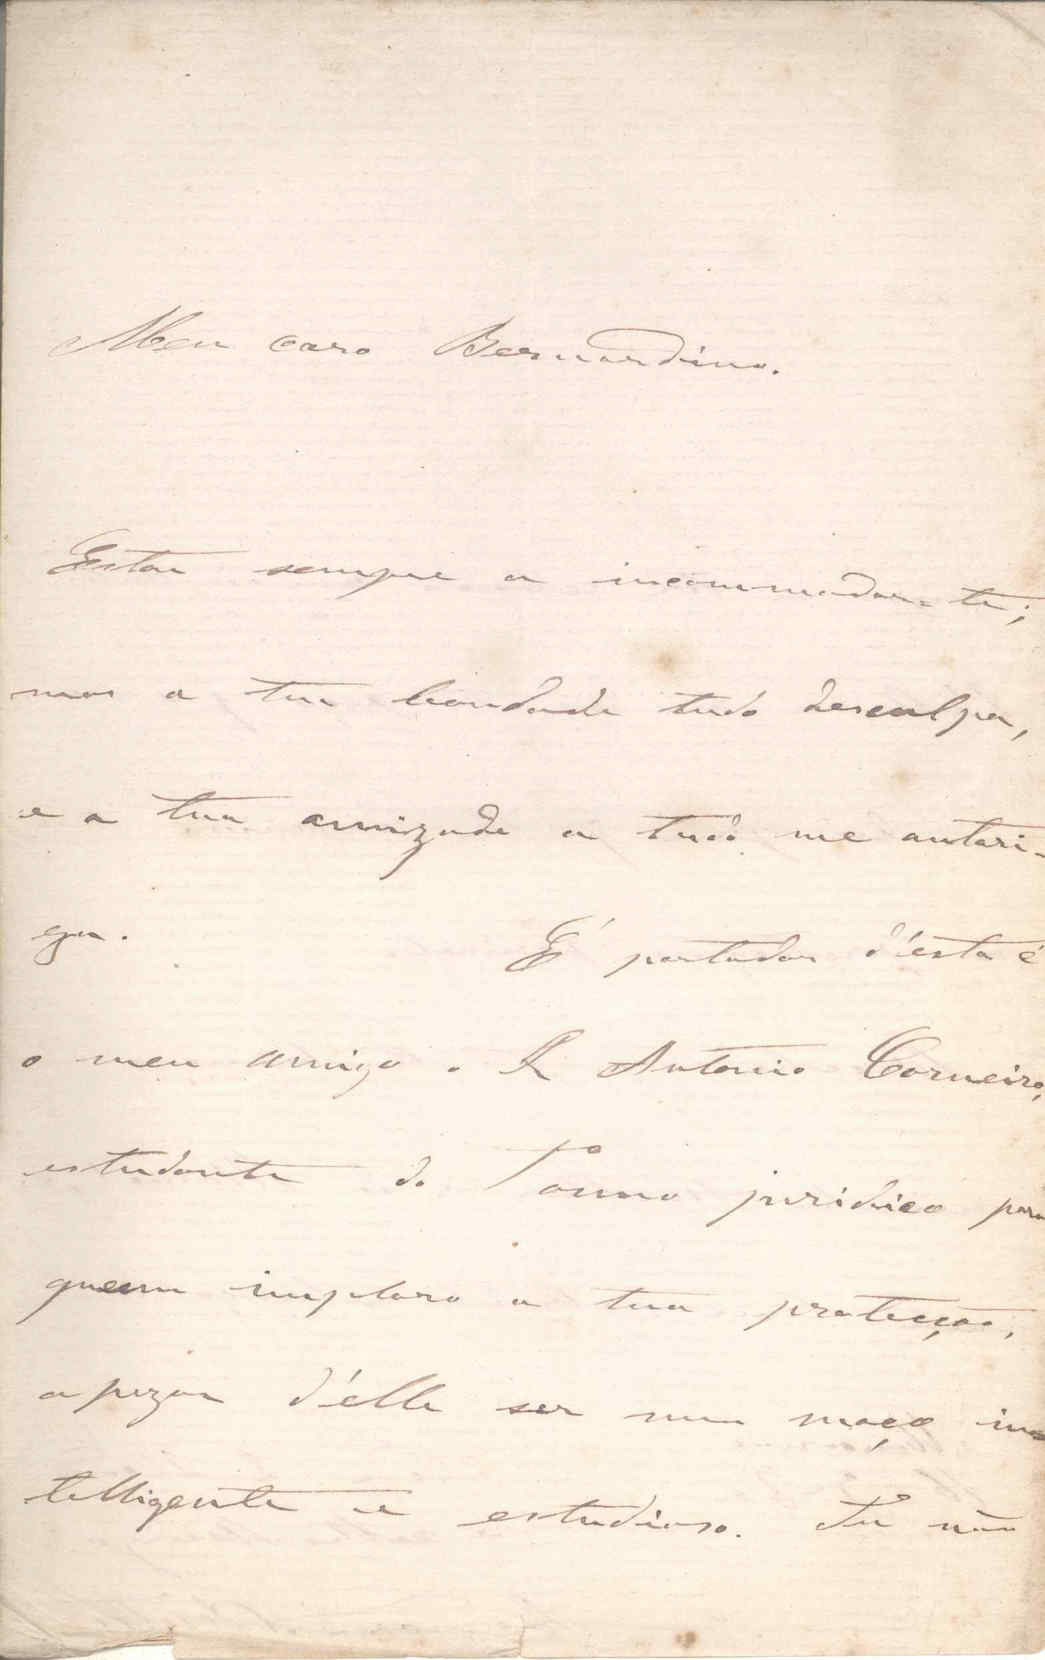 Meu caro Bernardino.
Estou sempre a incommodar-te;
mas a tua bondade tudo desculpa,
e a tua amizade a tudo me autori-
za. É portador d'esta é
o meu amigo o Antonio Carneiro,
estudante do 1º anno juridico para
quem imploro a tua protecção,
apezar d'elle ser um moço in-
telligente e estudioso. Tu não